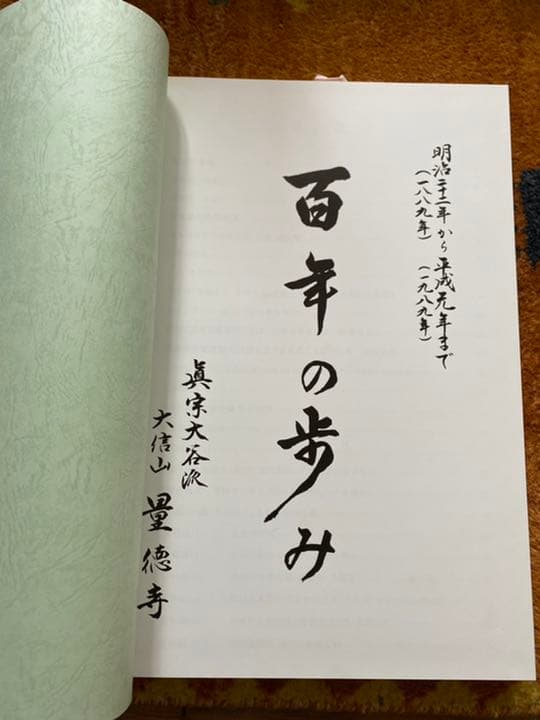 明治二十二年から平成元年まで
（一八八九年）　（一九八九年）
百年の歩み
眞宗大谷派
大信山 量徳寺